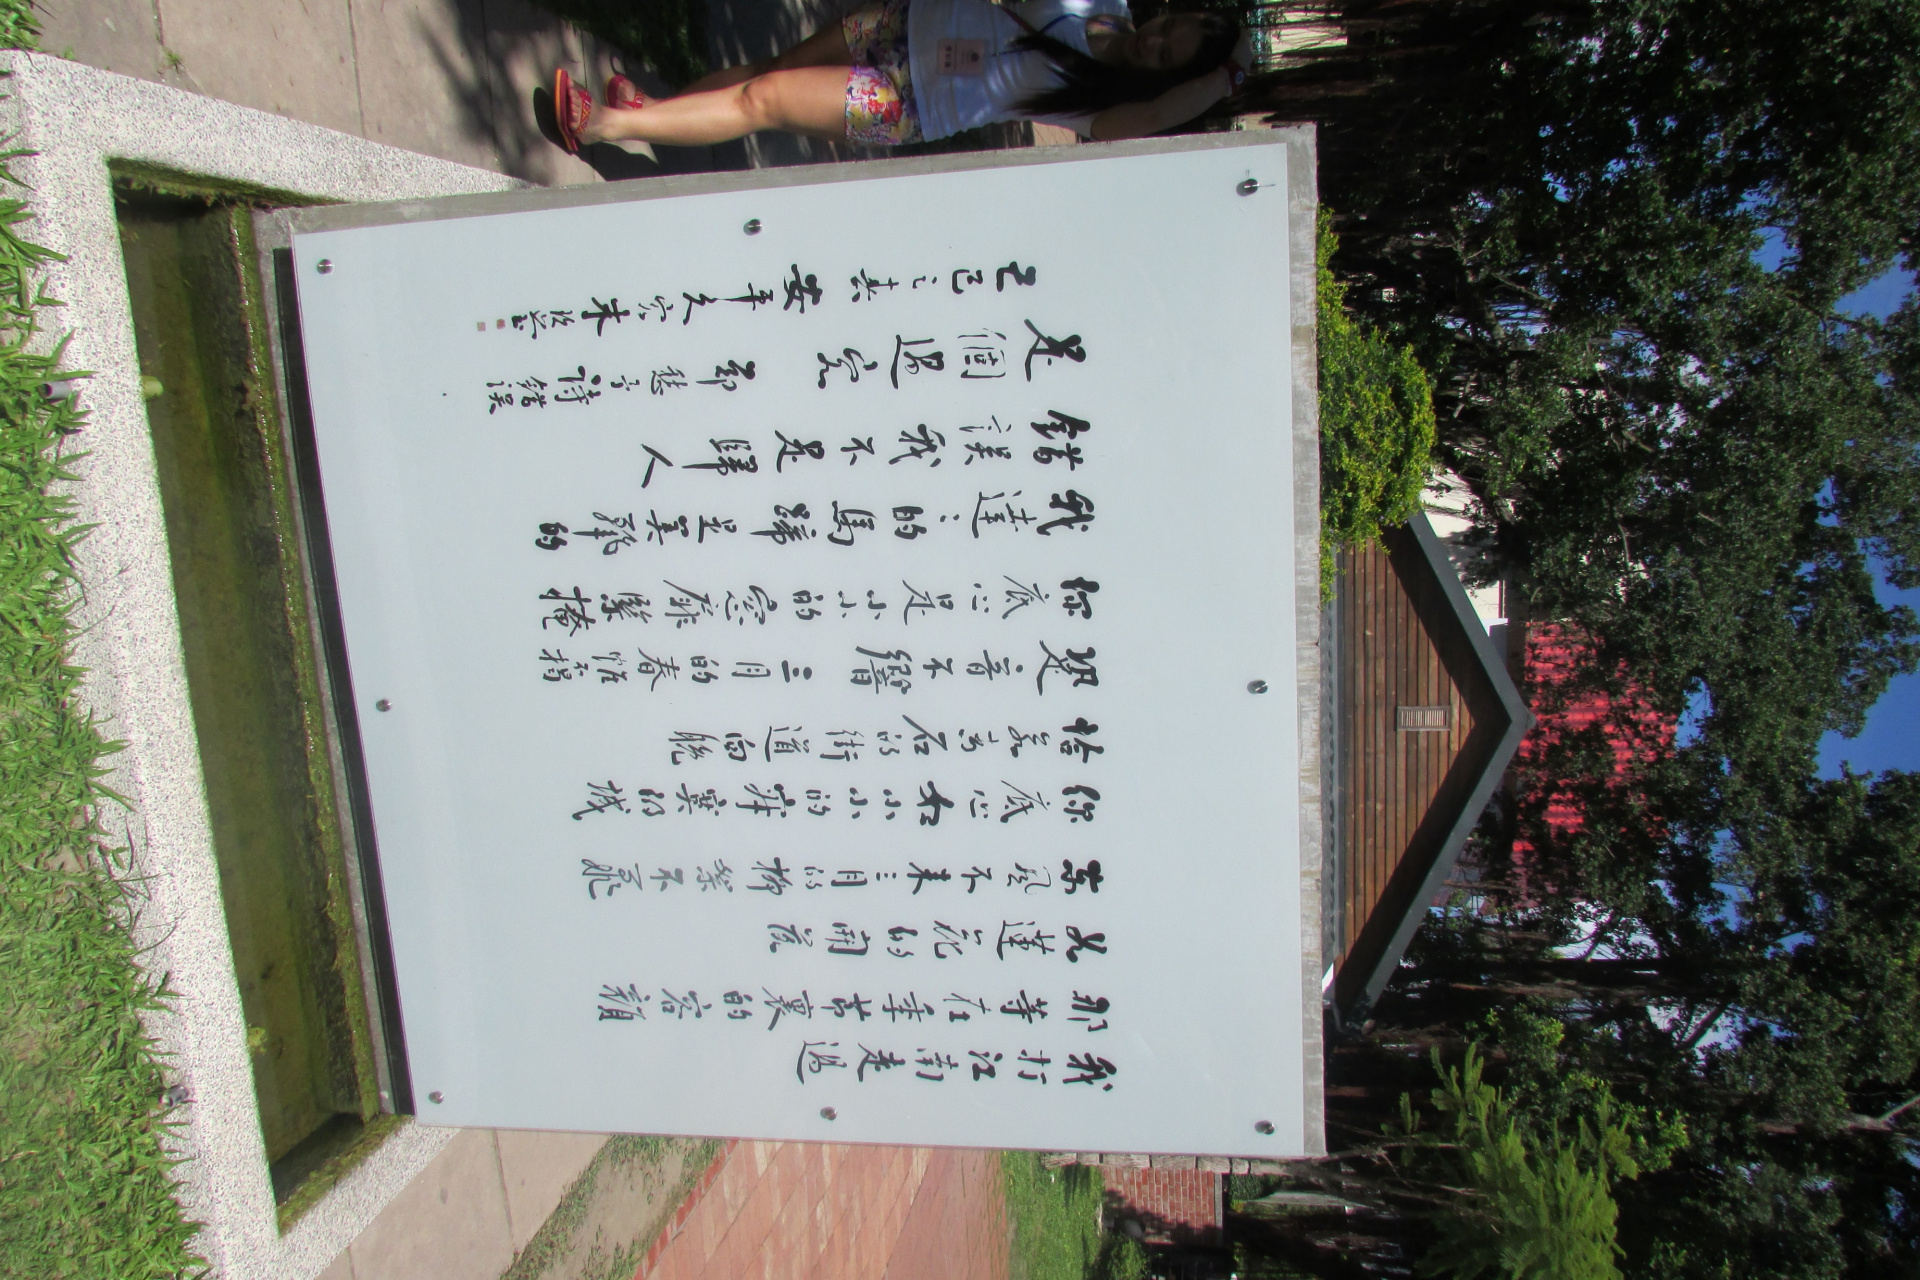 我打江南走過
那等在季節裏的容顏
如蓮花的開落
東風不來三月的柳絮不飛
你底心如小小的寂寞的城
恰若青石的街道向晚
跫音不響三月的春帷不揭
你底心是小小的窗扉緊掩
我達〻的馬蹄是美麗的
錯誤我不是歸人
是個過客 鄭愁予詩錯誤
己巳之春 安平久客朱玖瑩